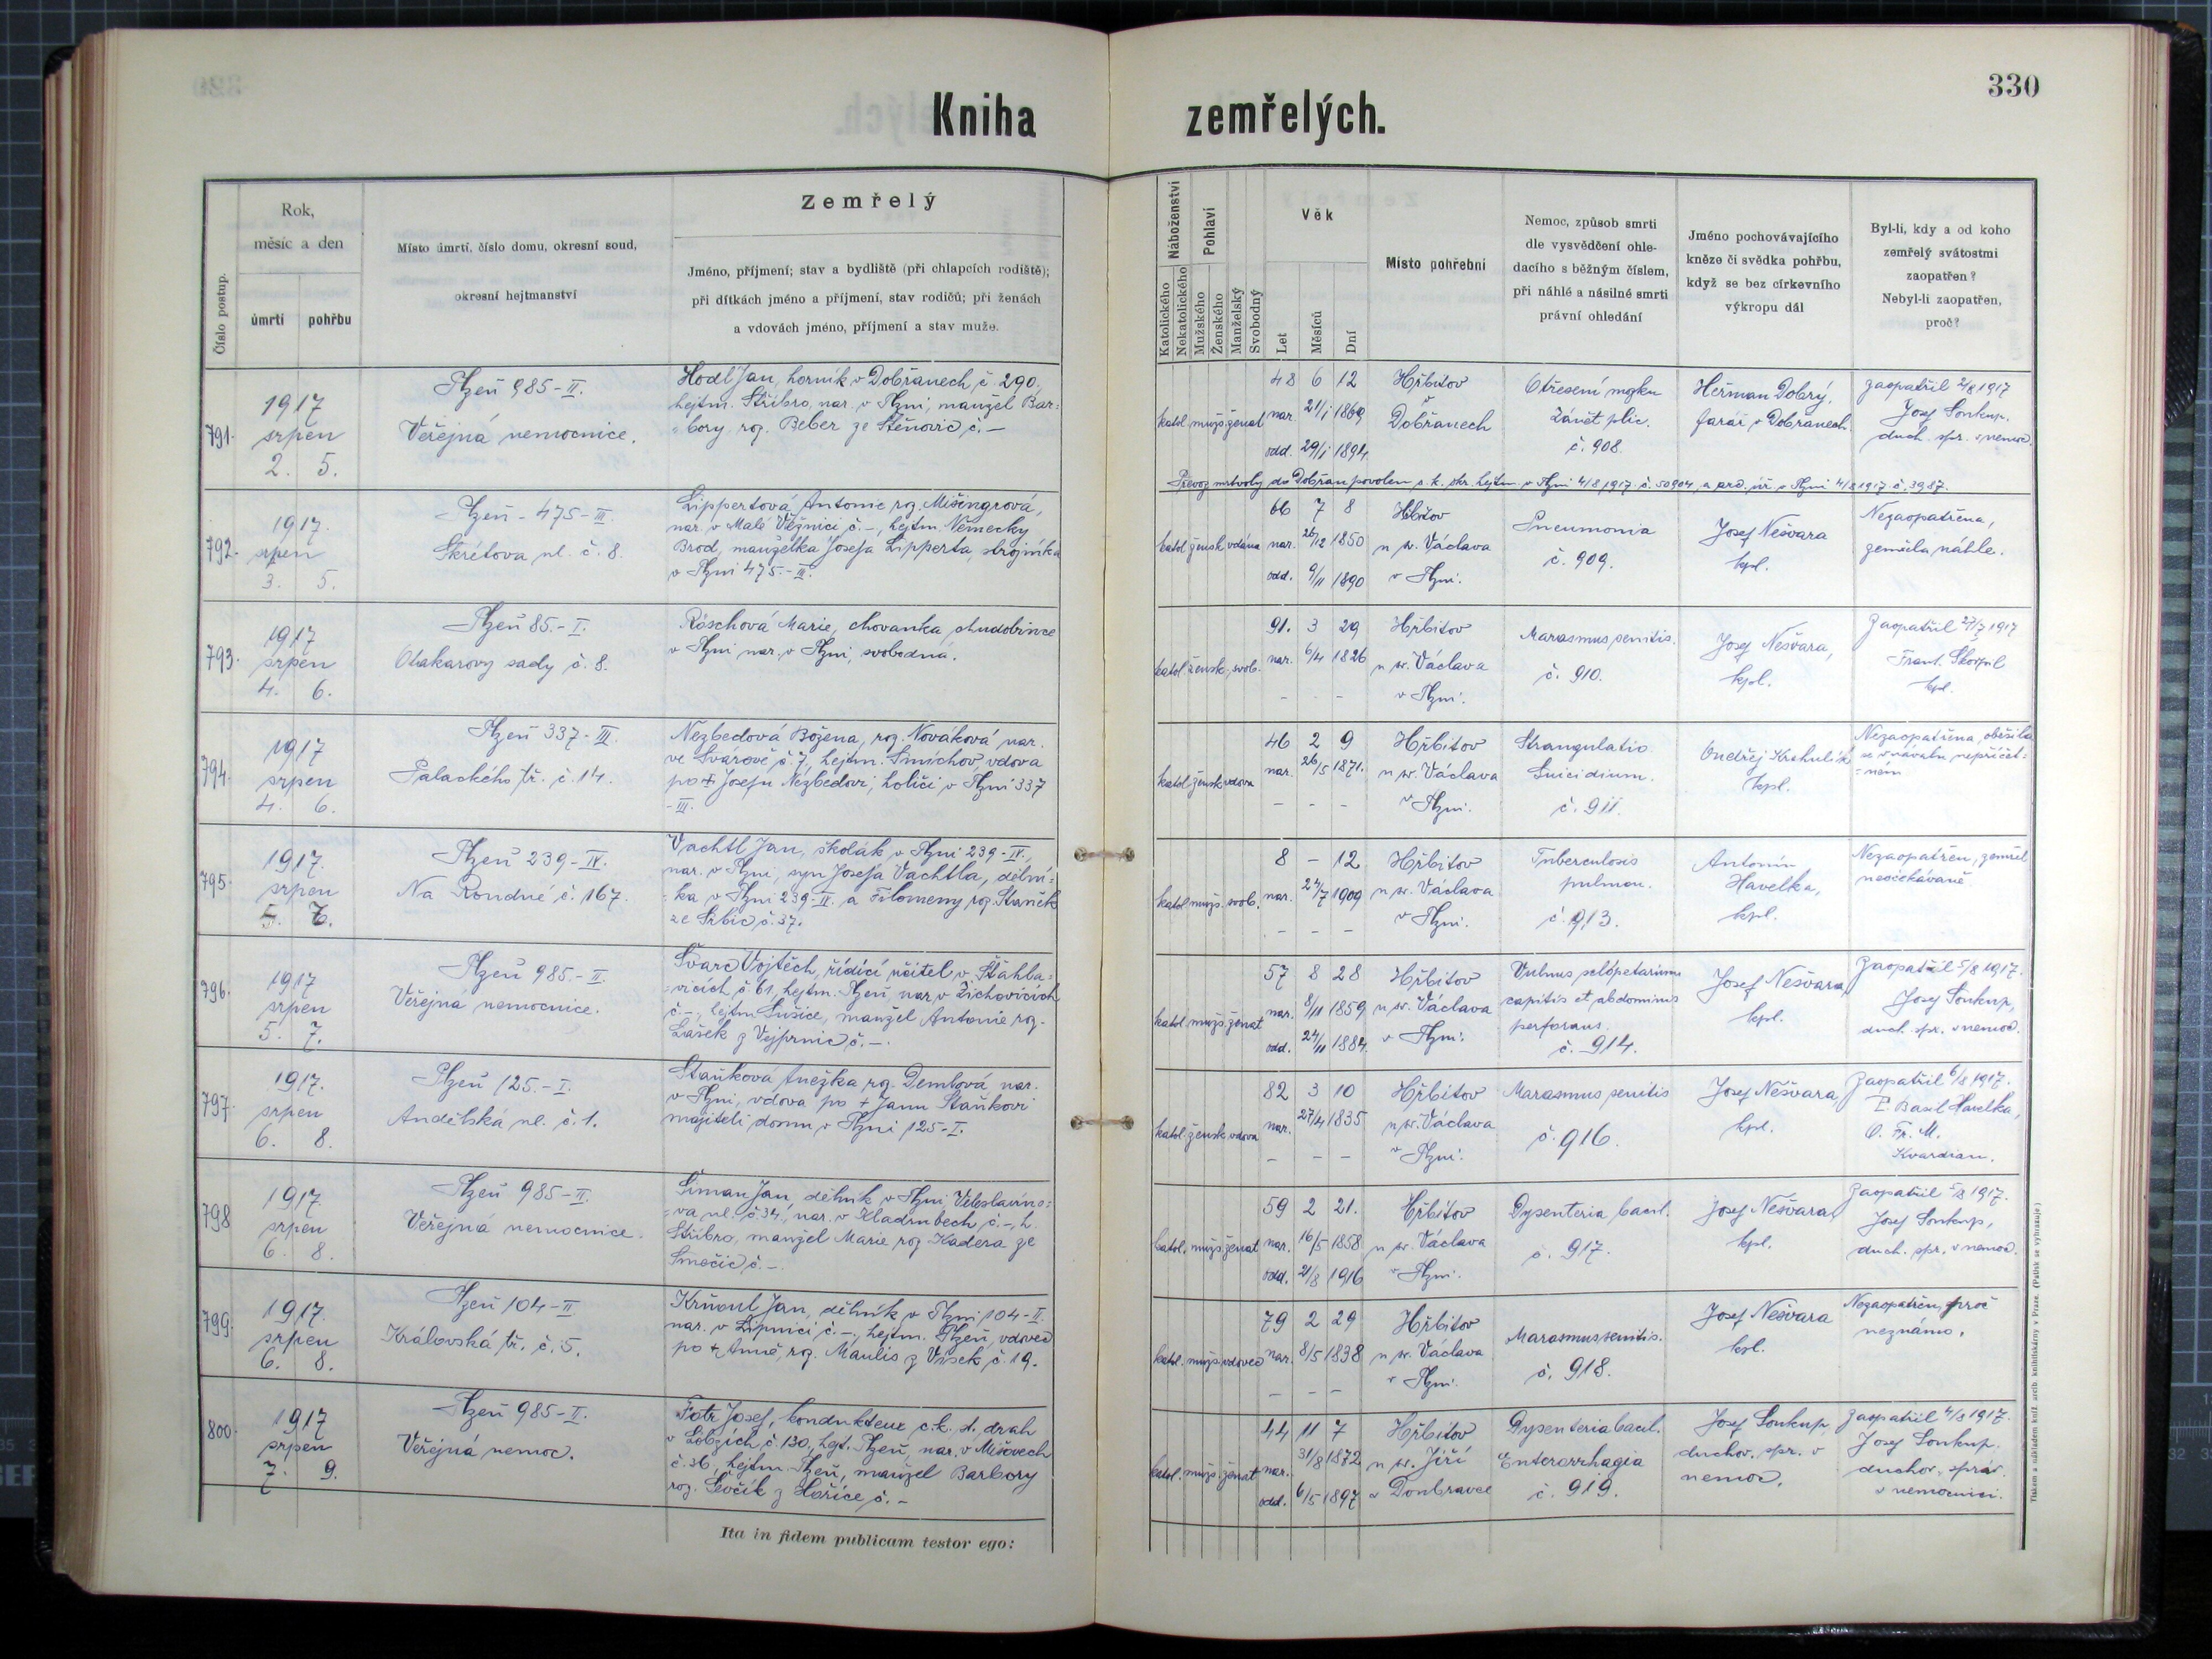 330
Kniha zemřelých.
Číslo postup.
Rok,
měsíc a den
úmrtí
pohřbu
Místo úmrtí, číslo domu, okresní soud,
okresní hejtmanství
Zemřelý
Jméno, příjmení; stav a bydliště (při chlapcích rodiště);
při dítkách jméno a příjmení, stav rodičů; při ženách
a vdovách jméno, příjmení a stav muže.
Náboženství
Katolického
Nekatolického
Pohlaví
Mužského
Ženského
Manželský
Svobodný
Věk
Let
Měsíců
Dní
Místo pohřební
Nemoc, způsob smrti
dle vysvědčení ohle-
dacího s běžným číslem,
při náhlé a násilné smrti
právní ohledání
Jméno pochovávajícího
kněze či svědka pohřbu,
když se bez církevního
výkropu dál
Byl-li, kdy a od koho
zemřelý svátostmi
zaopatřen?
Nebyl-li zaopatřen,
proč?
791.
1917
srpen
2. 5.
Plzeň 985-II.
Veřejná nemocnice.
Hodl Jan, horník v Dobřanech, č. 290,
hejtm. Stříbro, nar. v Plzni, manžel Bar=
=bory, roz. Beber ze Štěnovic č. –
katol. mužs. ženat
48 6 12
nar. 21/I 1869
odd. 29/I 1894.
Hřbitov
v
Dobřanech
Otřesení mozku
Zánět plic.
č. 908.
Heřman Dobrý,
farář v Dobřanech.
Zaopatřil 2/8 1917
Josef Soukup.
duch. spr. v nemoc.
Převoz mrtvoly do Dobřan povolen c. k. okr. hejtm. v Plzni 4/8 1917 č. 50904, a arcid. úř. v Plzni 4/8 1917 č. 3987.
792.
1917.
srpen
3. 5.
Plzeň - 475-III.
Škrétova ul. č. 8.
Lippertová Antonie roz. Mišingrová,
nar. v Malé Věžnici č. –, hejtm. Německý
Brod, manželka Josefa Lipperta, strojníka
v Plzni 475.-III.
katol. žensk. vdána
66 7 8
nar. 26/12 1850
odd. 9/11 1890
Hřbitov
u sv. Václava
v Plzni.
Pneumonia
č. 909.
Josef Nešvara
kpl.
Nezaopatřena,
zemřela náhle.
793.
1917
srpen
4. 6.
Plzeň 85.-I.
Otakarovy sady č. 8.
Röschová Marie, chovanka chudobince
v Plzni nar. v Plzni, svobodná.
katol. žensk. svob.
91. 3 29
nar. 6/4 1826
– – –
Hřbitov
u sv. Václava
v Plzni.
Marasmus senilis.
č. 910.
Josef Nešvara,
kpl.
Zaopatřil 27/7 1917
Frant. Škorpil
kpl.
794.
1917
srpen
4. 6.
Plzeň 337-III.
Palackého tř. č. 14.
Nezbedová Božena, roz. Nováková nar.
ve Svárově č. 7, hejtm. Smíchov, vdova
po + Josefu Nezbedovi, holiči v Plzni 337
-III.
katol. žensk. vdova
46 2 9
nar. 26/5 1871.
– – –
Hřbitov
u sv. Václava
v Plzni.
Strangulatio
Suicidium.
č. 911.
Ondřej Krahulík
kpl.
Nezaopatřena, oběsila
se v návalu nepříčet=
=ném
795.
1917.
srpen
5. 7.
Plzeň 239-IV.
Na Rondné č. 167.
Vachtl Jan, školák v Plzni 239-IV.,
nar. v Plzni, syn Josefa Vachtla, dělní=
=ka v Plzni 239-IV. a Filomeny roz. Staněk
ze Srbic č. 37.
katol. mužs. svob.
8 – 12
nar. 24/7 1909
– – –
Hřbitov
u sv. Václava
v Plzni.
Tuberculosis
pulmon.
č. 913.
Antonín
Havelka,
kpl.
Nezaopatřen, zemřel
neočekávaně
796.
1917
srpen
5. 7.
Plzeň 985.-II.
Veřejná nemocnice.
Švarc Vojtěch, řídící učitel v Šťáhla=
=vicích č. 61, hejtm. Plzeň, nar. v Žichovicích
č. –, hejtm. Sušice, manžel Antonie roz.
Lašek z Vejprnic č. –.
katol. mužs. ženat
57 8 28
nar. 8/11 1859
odd. 24/11 1884.
Hřbitov
u sv. Václava
v Plzni.
Vulnus sclopetarium
capitis et abdominis
perforans.
č. 914.
Josef Nešvara,
kpl.
Zaopatřil 5/8 1917.
Josef Soukup,
duch. spr. v nemoc.
797.
1917.
srpen
6. 8.
Plzeň 125.-I.
Andělská ul. č. 1.
Staňková Anežka roz. Demlová nar.
v Plzni, vdova po + Janu Staňkovi
majiteli domu v Plzni 125-I.
katol. žensk. vdova
82 3 10
nar. 27/4 1835
– – –
Hřbitov
u sv. Václava
v Plzni.
Marasmus senilis
č. 916.
Josef Nešvara,
kpl.
Zaopatřil 6/8 1917.
P. Basil Havelka,
O. Fr. M.
Kvardian.
798
1917.
srpen
6. 8.
Plzeň 985-II.
Veřejná nemocnice.
Šiman Jan, dělník v Plzni Veleslavíno=
=va ul. č 34, nar. v Kladrubech č. –, h.
Stříbro, manžel Marie roz. Kadera ze
č. –.
katol. mužs. ženat
59 2 21.
nar. 16/5 1858
odd. 21/8 1916
Hřbitov
u sv. Václava
v Plzni.
Dysenteria bacil.
č. 917.
Josef Nešvara,
kpl.
Zaopatřil 5/8 1917.
Josef Soukup,
duch. spr. v nemoc.
799.
1917.
srpen
6. 8.
Plzeň 104-II
Královská tř. č. 5.
Krňoul Jan, dělník v Plzni 104-II.
nar. v Lipnici č. –, hejtm. Plzeň, vdovec
po + Anně, roz. Maulis z Vrisek, č. 19.
katol. mužs. vdovec
79 2 29
nar. 8/5 1838
– – –
Hřbitov
u sv. Václava
v Plzni.
Marasmus senilis.
č. 918.
Josef Nešvara
kpl.
Nezaopatřen, proč
neznámo.
800.
1917
srpen
7. 9.
Plzeň 985-II.
Veřejná nemoc.
Fatr Josef, kondukteur c. k. st. drah
v Lobzích č. 130, hejt. Plzeň, nar. v Mišovech
č. 36, hejtm. Plzeň, manžel Barbory
roz. Ševčík z Hořice č. –
katol. mužs. ženat
44 11 7
nar. 31/8 1872
odd. 6/5 1897
Hřbitov
u sv. Jiří
v Doubravce
Dysenteria bacil.
Enterorrhagia
č. 919.
Josef Soukup,
duchov. spr. v
nemoc.
Zaopatřil 4/8 1917.
Josef Soukup.
duchov. správ.
v nemocnici.
Ita in fidem publicam testor ego:
Tiskem a nákladem kníž. arcib. knihtiskárny v Praze. (Patisk se vyhrazuje.)